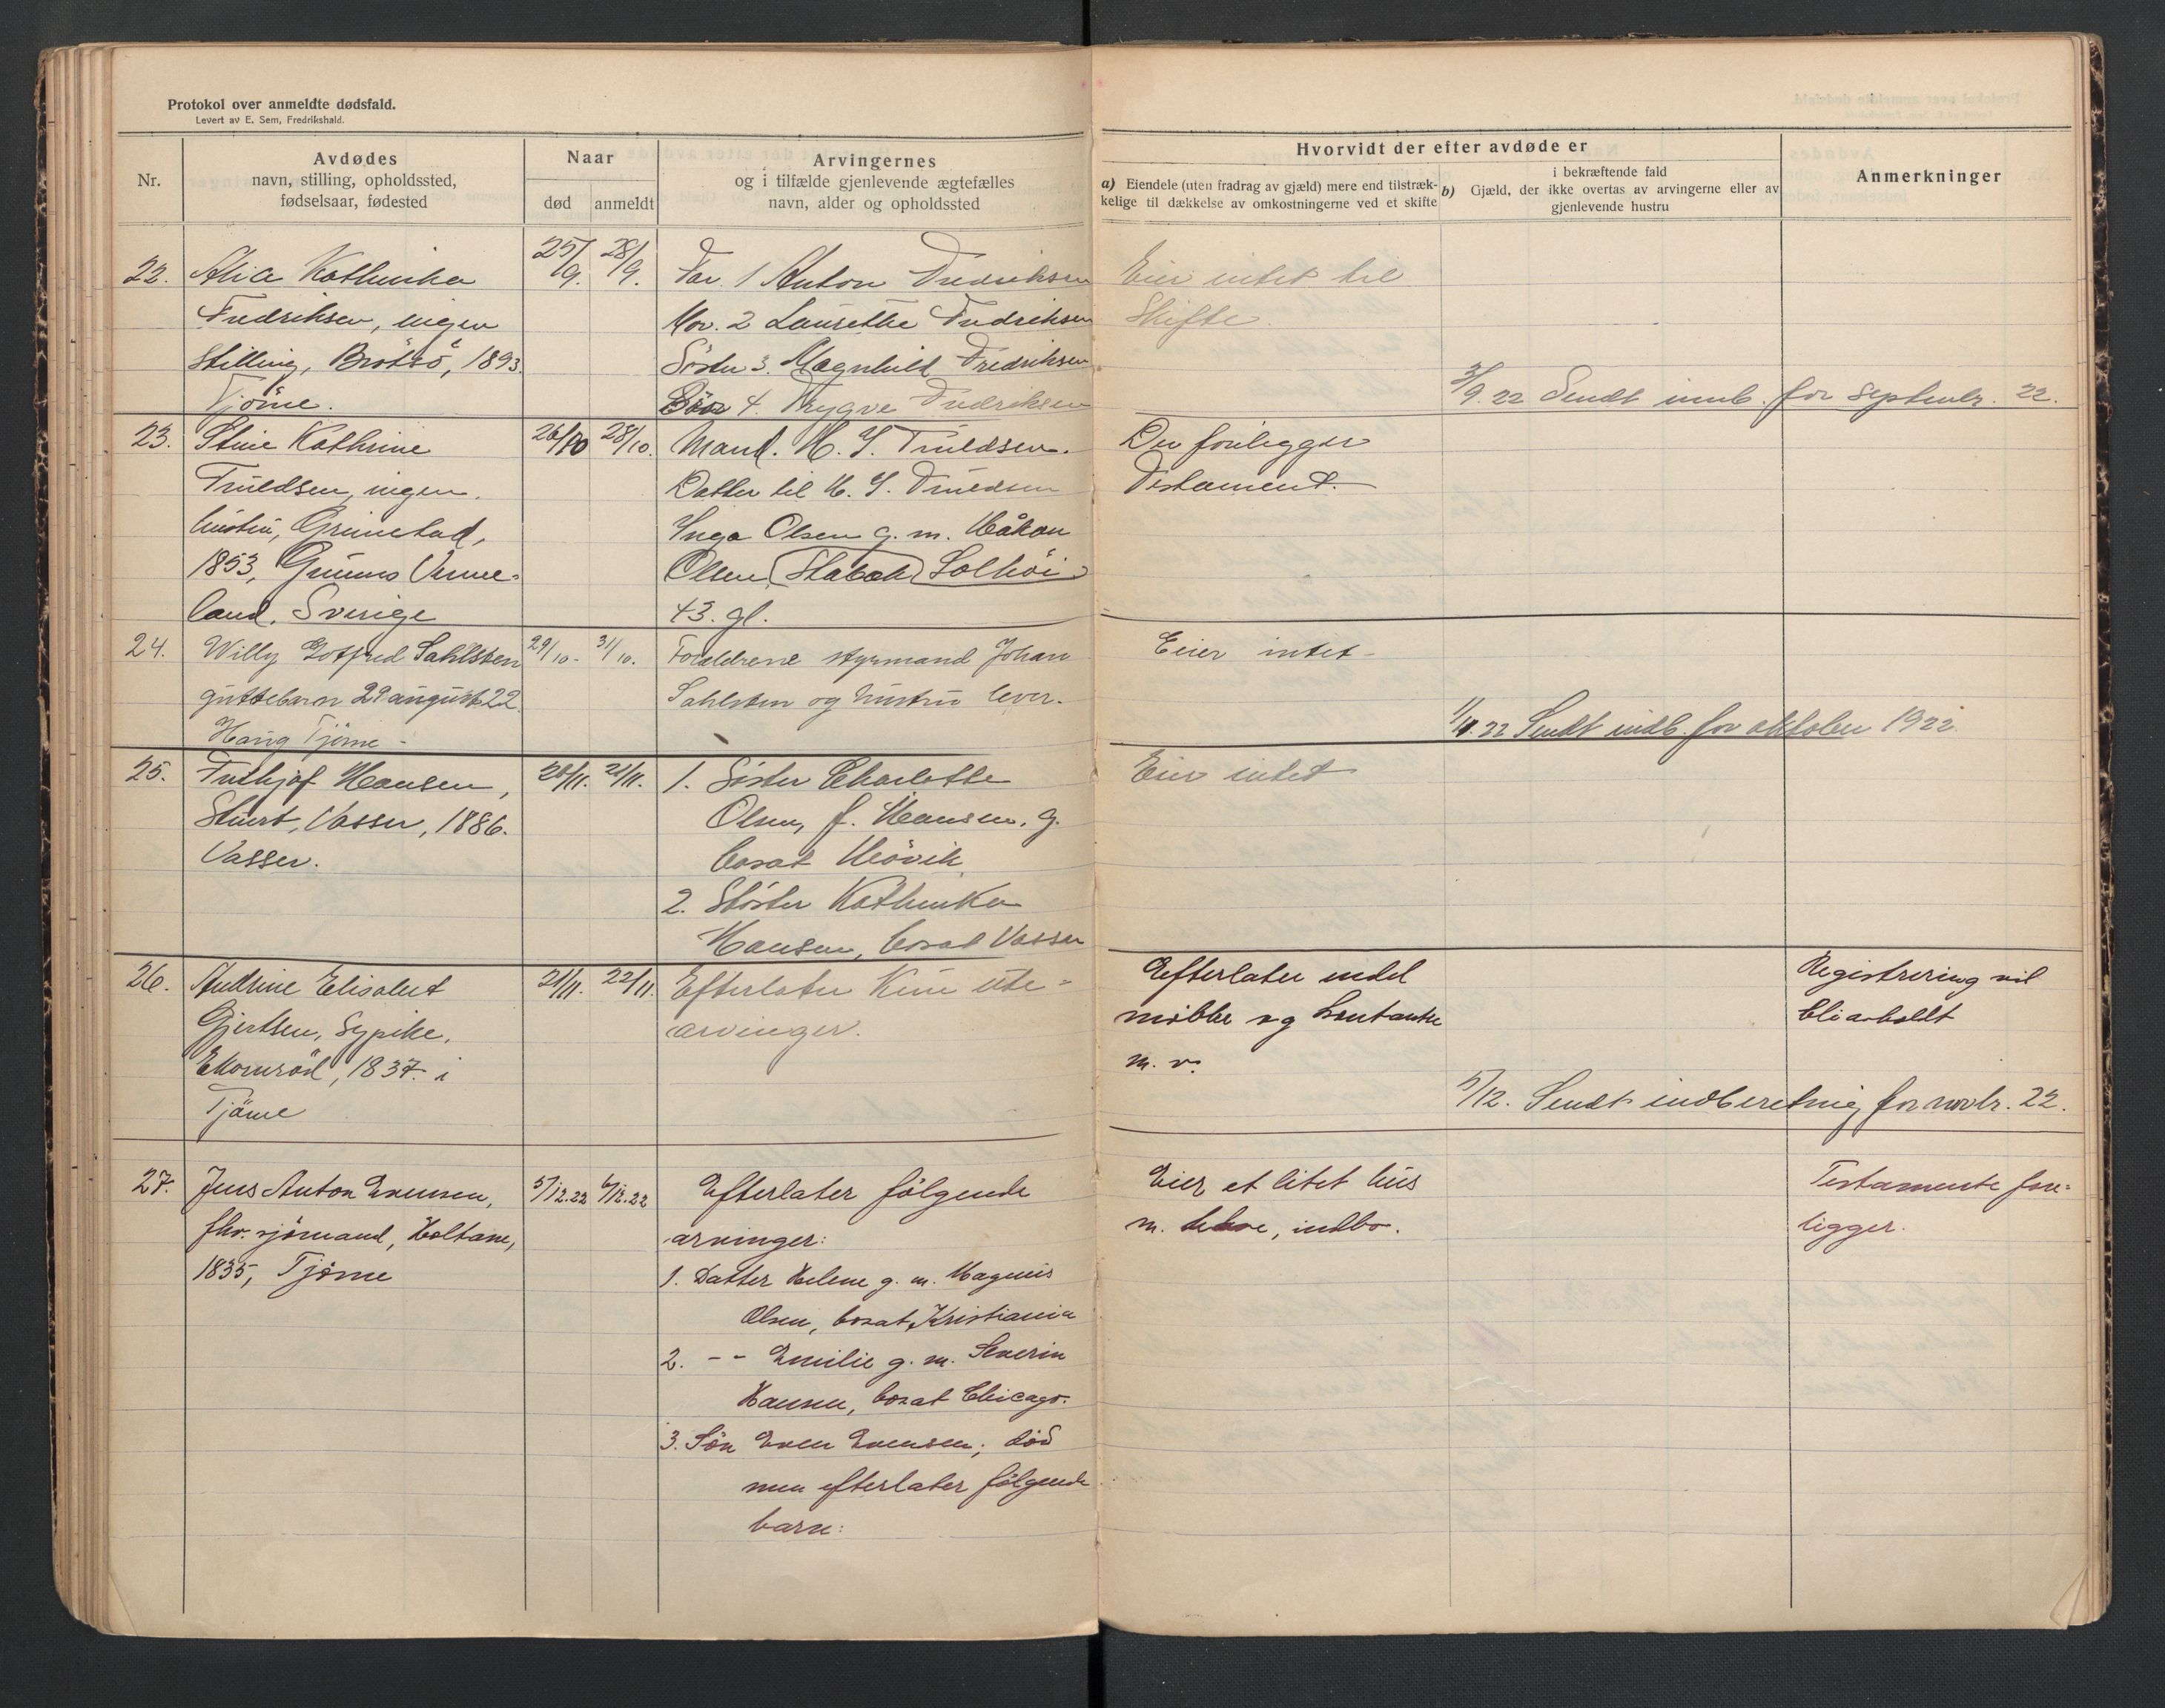 Protokol over anmeldte dødsfald.
Levert av E. Sem, Fredrikshald.
Nr.
Avdødes
navn, stilling, opholdssted,
fødselsaar, fødested
Naar
død
anmeldt
Arvingernes
og i tilfælde gjenlevende ægtefælles
navn, alder og opholdssted
Hvorvidt der efter avdøde er
a) Eiendele (uten fradrag av gjæld) mere end tilstræk-
kelige til dækkelse av omkostningerne ved et skifte
i bekræftende fald
b) Gjæld, der ikke overtas av arvingerne eller av
gjenlevende hustru
Anmerkninger
22.
Alica Kathinka
Fredriksen, ingen
Stilling, Brötsö, 1893.
Tjöme.
25/9.
28/9.
Far. 1 Anton Fredriksen
Mor. 2 Laurette Fredriksen
Söster 3. Magnhild Fredriksen
4. Trygve Fredriksen
Eier intet til
Skifte.
/9.22 Sendt innb. for septembr. 22.
23.
Stine Kathrine
Truldsen, ingen.
hustru, Grimestad,
1853, Verme-
land. Sverige
26/10
28/10.
Mand. H. J. Truldsen.
Datter til H. J. Truldsen
Inga Olsen g. m. Håkon
Olsen, (Stabæk) Solhöi
43. gl.
Der foreligger
Testament.
24.
Willy Gotfred Sahlsten
guttebarn 29 august 22.
Haug Tjöme -
29/10.
31/10.
Forældrene styrmand Johan
Sahlsten og hustru lever.
Eier intet -
1/11.22 Sendt indb. for oktober 1922.
25.
Frithjof Hansen,
Vasser, 1886.
Vasser.
20/11.
21/11.
1. Söster Charlotte
Olsen, f. Hansen. g.
bosat Medvik
2. Söster Kathinka
Hansen, bosat Vasser
Eier intet
26.
Andrine Elisabet
Gjertsen, Sypike,
Ekornröd, 1837. i
Tjöme
21/11.
22/11.
Efterlater Kun ute-
arvinger.
Efterlater endel
möbler og kontanter
m. v.
Registrering vil
bli avholdt
5/12. Sendt indberetning for novbr. 22.
27.
Jens Anton Evensen,
fhv. sjömand, Holtane,
1835, Tjöme
5/12.22
6/12.22
Efterlater fölgende
arvinger:
1. Datter Helene g. m. Magnus
Olsen, bosat Kristiania
2. -- Emilie g. m. Severin
Hansen, bosat Chicago.
3. Sön Even Evensen; död
men efterlater fölgende
barn:
Eier et litet hus
m. tilhør, indbo.
Testamente fore-
ligger.